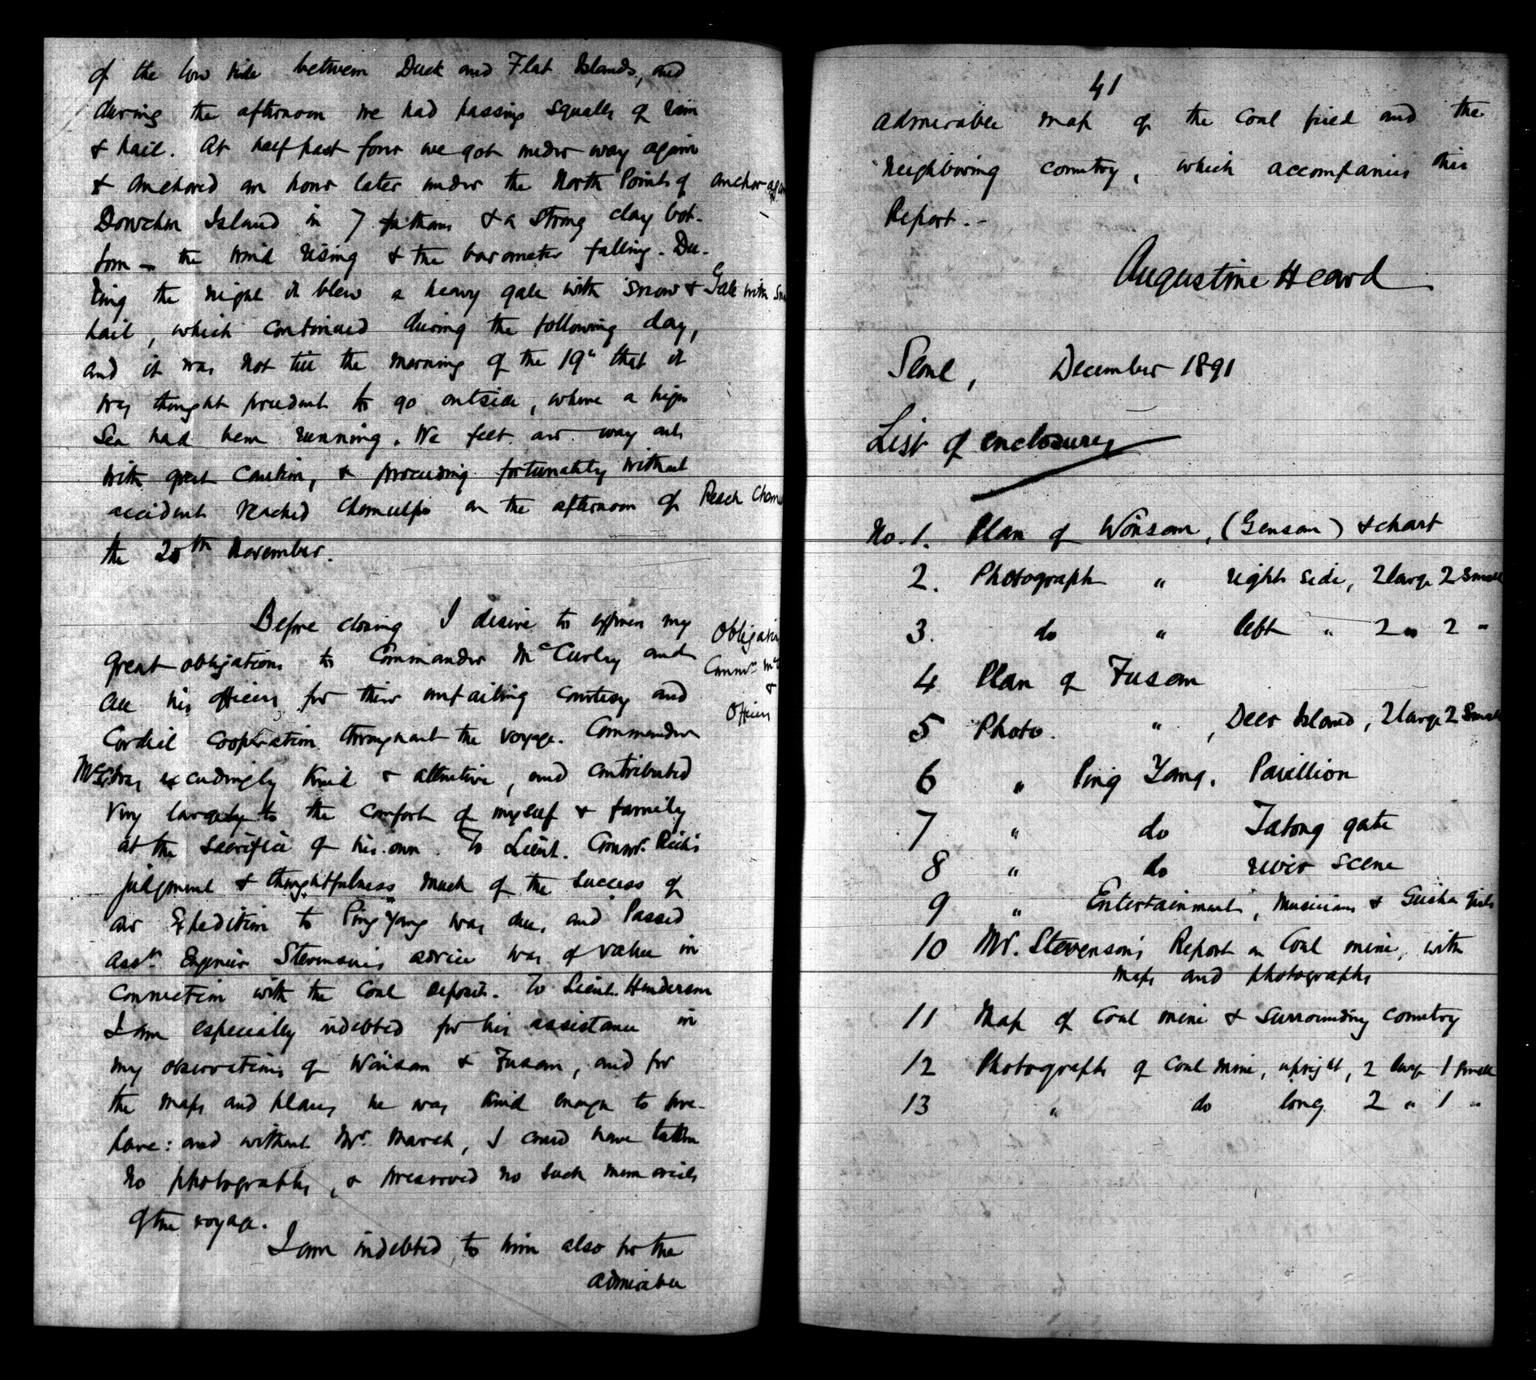 of the low tide between Duck and Flat Islands, and
during the afternoon we had passing squalls of rain
& hail. At half past four we got under way again
& anchored an hour later under the North Point of
anchor again
Dowchen Island in 7 fathoms & a strong clay bot-
tom – the wind rising & the barometer falling. Du-
ring the night it blew a heavy gale with snow &
Gale with
hail, which continued during the following day,
and it was not till the morning of the 19th that it
was thought prudent to go outside, where a high
Sea had been running. We felt our way out
with great caution, & proceeding fortunately without
accident reached Chemulpo on the afternoon of
Reach
the 20th November.
Before closing I desire to express my
great obligations to Commander McCurley and
all his officers for their unfailing courtesy and
Cordial cooperation throughout the voyage. Commander
McC. was exceedingly kind & attentive, and contributed
very largely to the comfort of myself & family
at the sacrifice of his own. To Lieut. Comdr. Rich's
judgment & thoughtfulness much of the success of
our Expedition to Ping Yang was due, and Passed
Asst. Engineer Stevenson's advice was of value in
connection with the Coal deposit. To Lieut. Henderson
I am especially indebted for his assistance in
my observations of Wönsan & Fusan, and for
the maps and plans he was kind enough to pre-
pare: and without Mr. March, I could have taken
no photographs, & preserved no such memorials
of the voyage.
I am indebted to him also for the
admirable
&
Officers
41
admirable map of the Coal field and the
neighboring country, which accompanies this
Report. –
Augustine Heard
Seoul, December 1891
List of enclosures
No. 1. Plan of Wönsan, (Gensan) & chart
2. Photograph " right side, 2 large 2 small
3. do " left " 2 " 2 "
4 Plan of Fusan
5 Photo. " , Deer Island, 2 large 2 small
6 " Ping Yang, Pavillion
7 " do Tatong gate
8 " do river scene
9 " Entertainment, Musicians & Geisha girls
10 Mr. Stevenson's Report on Coal mine, with
maps and photographs
11 Map of Coal mine & surrounding country
12 Photographs of Coal mine, upright, 2 large 1 small
13 " do long 2 " 1 "